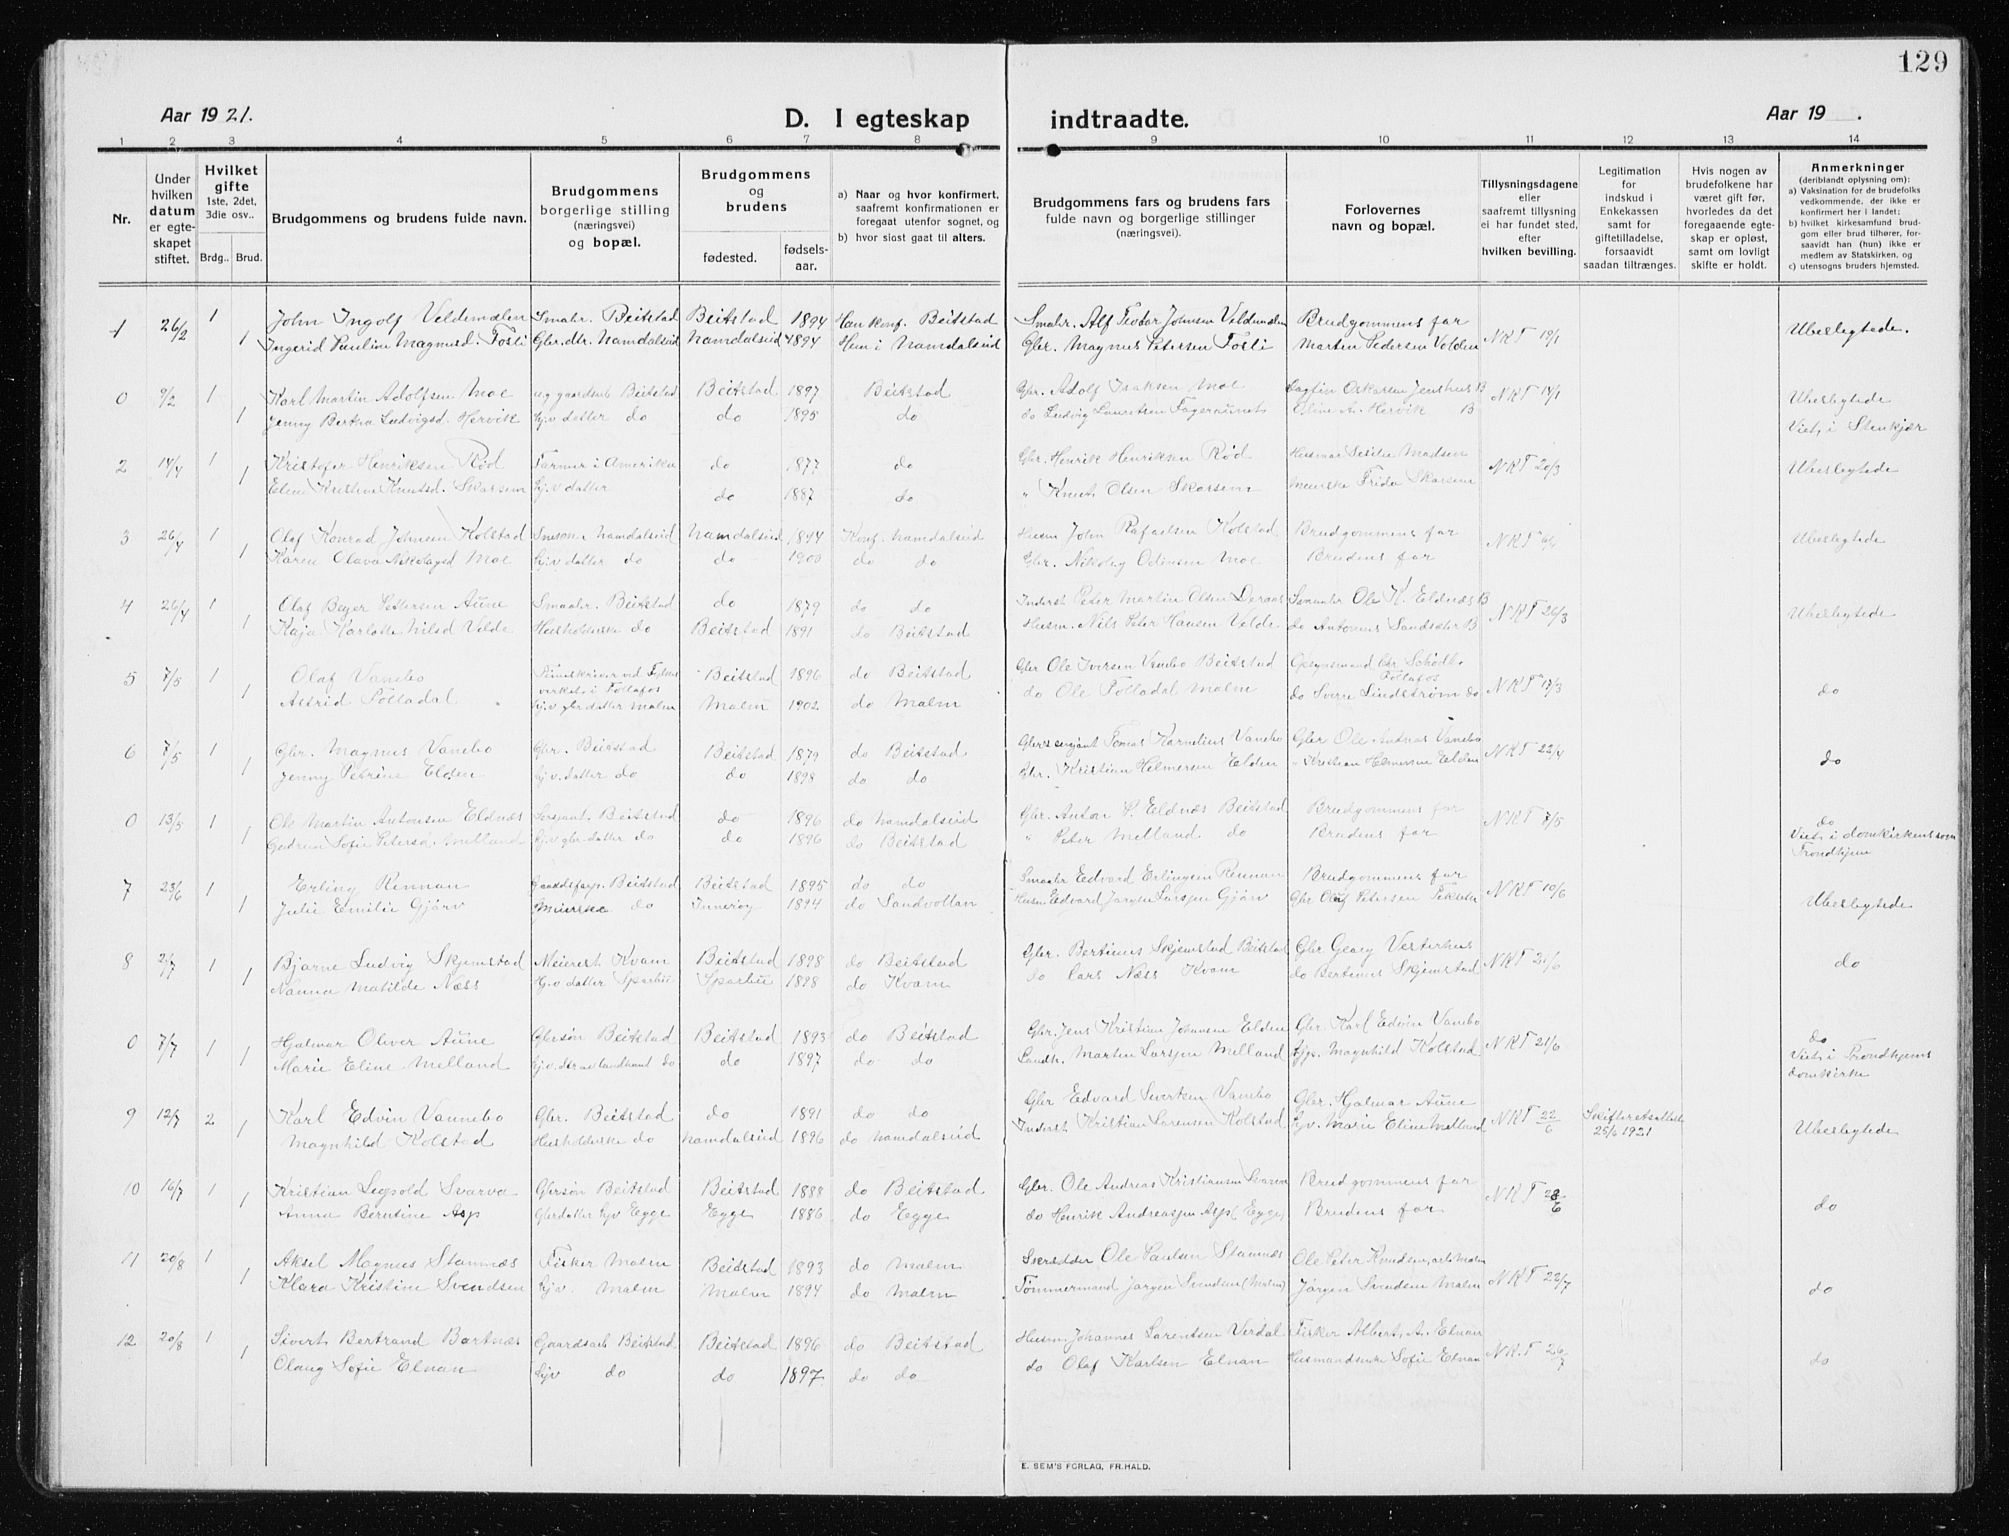 129
Aar 1921.
D. I egteskap indtraadte.
Aar 19 .
1 2 3 4 5 6 7 8 9 10 11 12 13 14
Nr.
Under hvilken datum er egteskapet stiftet.
Hvilket gifte 1ste, 2det, 3die osv..
Brdg.. Brud.
Brudgommens og brudens fulde navn.
Brudgommens borgerlige stilling (næringsvei) og bopæl.
Brudgommens og brudens
fødested. fødselsaar.
a) Naar og hvor konfirmert, saafremt konfirmationen er foregaat utenfor sognet, og
b) hvor sidst gaat til alters.
Brudgommens fars og brudens fars fulde navn og borgerlige stillinger (næringsvei).
Forlovernes navn og bopæl.
Tillysningsdagene eller saafremt tillysning ei har fundet sted, efter hvilken bevilling.
Legitimation for indskud i Enkekassen samt for giftetilladelse, forsaavidt saadan tiltrænges.
Hvis nogen av brudefolkene har været gift før, hvorledes da det foregaaende egteskap er opløst, samt om lovligt skifte er holdt.
Anmerkninger (deriblandt oplysning om):
a) Vaksination for de brudefolks vedkommende, der ikke er konfirmert her i landet;
b) hvilket kirkesamfund brudgom eller brud tilhører, forsaavidt han (hun) ikke er medlem av Statskirken, og
c) utensogns bruders hjemsted.
1 26/2 1 John Ingolf Veldemælen Smabr. Beitstad Beitstad 1894 Han konf. Beitstad Smabr. Alf Teodor Johnsen Veldemælen Brudgommens far NKT 19/1 Ubeslegtede.
1 Ingerid Pauline Magnusd. Fosli Gbr.dtr. Namdalseid Namdalseid 1894 Hun i Namdalseid Gbr. Magnus Petersen Fosli Martin Pedersen Volden
0 9/2 1 Karl Martin Adolfsen Moe Beitstad Beitstad 1897 Beitstad Gbr. Adolf Isaksen Moe NKT 14/1 Ubeslegtede
1 Jenny Bertha Ludvigsd. Hervik hjv datter do do 1895 do do Ludvig Lauritsen Fageraunet Hervik B Viet i Stenkjær
2 14/4 1 Kristofer Henriksen Rød Farmer i Amerika do 1877 do Gbr. Henrik Henriksen Rød Madsen NKT 20/3 Ubeslegtede
1 Eline Kristine Knutsd. Skarsem hjv datter do 1887 do " Knut Olsen Skarsem Frida Skarsem
3 26/4 1 Olaf Konrad Johnsen Kolstad Namdalseid Namdalseid Konf. Namdalseid Husm John Rafaelsen Kolstad Brudgommens far NKT Ubeslegtede
1 Karen Olava Nikolaysd Moe hjv datter do do 1900 do do Gbr. Nikolay Odinsen Moe Brudens far
4 26/4 1 Olaf Beyer Pettersen Aune Smaabr. Beitstad do 1879 do do Inderst Peter Martin Olsen Smaabr Ole K. Eldnæs B NKT 26/3 Ubeslegtede
1 Kaja Karlotte Nilsd Velde Husholderske do Beitstad 1891 do Beitstad Husm. Nils Peter Hansen Velde do Antonius B
5 7/5 1 Olaf Vanebo i Follafos Beitstad 1896 do Beitstad Gbr Ole Iversen Vanebo Beitstad Follafos NKT 17/3 do
1 Astrid Folladal hjv gbr datter Malm Malm 1902 do Malm do Ole Folladal Malm do Sverre Lindstrøm do
6 7/5 1 Gbr. Magnus Vanebo Gbr. Beitstad Beitstad 1879 do Beitstad Tomas Kornelius Vanebo Gbr Ole Andreas Vanebo NKT 22/4 do
1 Jenny Petrine Elden hjv. datter do do 1898 do do Gbr. Kristian Helmersen Elden " Kristian Helmersen Elden
0 13/5 1 Ole Martin Antonsen Eldnæs Sersjant Beitstad do 1896 do Namdalseid Gbr. Anton P. Eldnæs Beitstad Brudgommens far NKT 7/5 do
1 Gudrun Sofie Petersd. Melland hjv gbr.datter do do 1896 do Beitstad " Peter Melland do Brudens far Viet i domkirken Trondhjem
7 23/6 1 Erling Rennan Beitstad Beitstad 1895 do do Smaabr Edvard Erlingsen Rennan Brudgommens far NKT 10/6 Ubeslegtede
1 Julie Emilie Gjørv Meierske do Inderøy 1894 do Sandvollan Husm Edvard Jørgen Larsen Gjørv Gbr Oluf Petersen
8 2/7 1 Bjarne Ludvig Skjemstad Meierist Kvam Beitstad 1898 do Beitstad Gbr. Bertinus Skjemstad Beitstad Gbr Georg Vesterhus NKT do
1 Nanna Matilde Næss Hjv datter Sparbu Sparbu 1898 do Kvam do Lars Næss Kvam do Bertinus Skjemstad
0 7/7 1 Hjalmar Oliver Aune Gbrsøn Beitstad Beitstad 1893 do Beitstad Gbr. Jens Kristian Johansen Elden Gbr. Karl Edvin Vanebo NKT 21/6 do
1 Marie Eline Melland hjv. dtr av landhand do do 1897 do do Landh. Martin Larsen Melland hjv. Magnhild Kolstad Viet i Trondhjems domkirke
9 12/7 2 Karl Edvin Vannebo Gbr. Beitstad do 1891 do do Gbr Edvard Sivertsen Vanebo Gbr. Hjalmar Aune NKT 22/6 Skifteretsattest 25/6 1921 Ubeslegtede
1 Magnhild Kolstad Husholderske do Namdalseid 1896 do Namdalseid Inderst Kristian Lorensen Kolstad hjv. Marie Eline Melland
10 16/7 1 Kristian Leopold Svarva Gbrsøn Beitstad Beitstad 1888 do Beitstad Gbr. Ole Andreas Kristiansen Svarva Brudgommens far NKT 28/6 do
1 Anna Berntine Asp Gbrdatter hjv Egge Egge 1886 do Egge do Henrik Andreassen Asp (Egge) Brudens far
11 20/8 1 Aksel Magnus Stamnæs Fisker Malm Beitstad 1893 do Malm Skrædder Ole Paulsen Stamnæs Ole Peter Knudsen, Malm NKT 22/7 do
1 Klara Kristine Svendsen hjv. Malm Malm 1894 do Malm Tømmermand Jørgen Svendsen (Malm) Jørgen Svendsen Malm
12 20/8 1 Sivert Bertrand Bartnæs Gaardsarb Beitstad Beitstad 1896 do Beitstad Husm Johannes Lorentsen Verdal Fisker Albert A. Elnan NKT 26/7 do
1 Olaug Sofie Elnan hjv do do 1897. do do do Olaf Karlsen Elnan Husmandsenke Sofie Elnan
E. SEM'S FORLAG, FR.HALD.